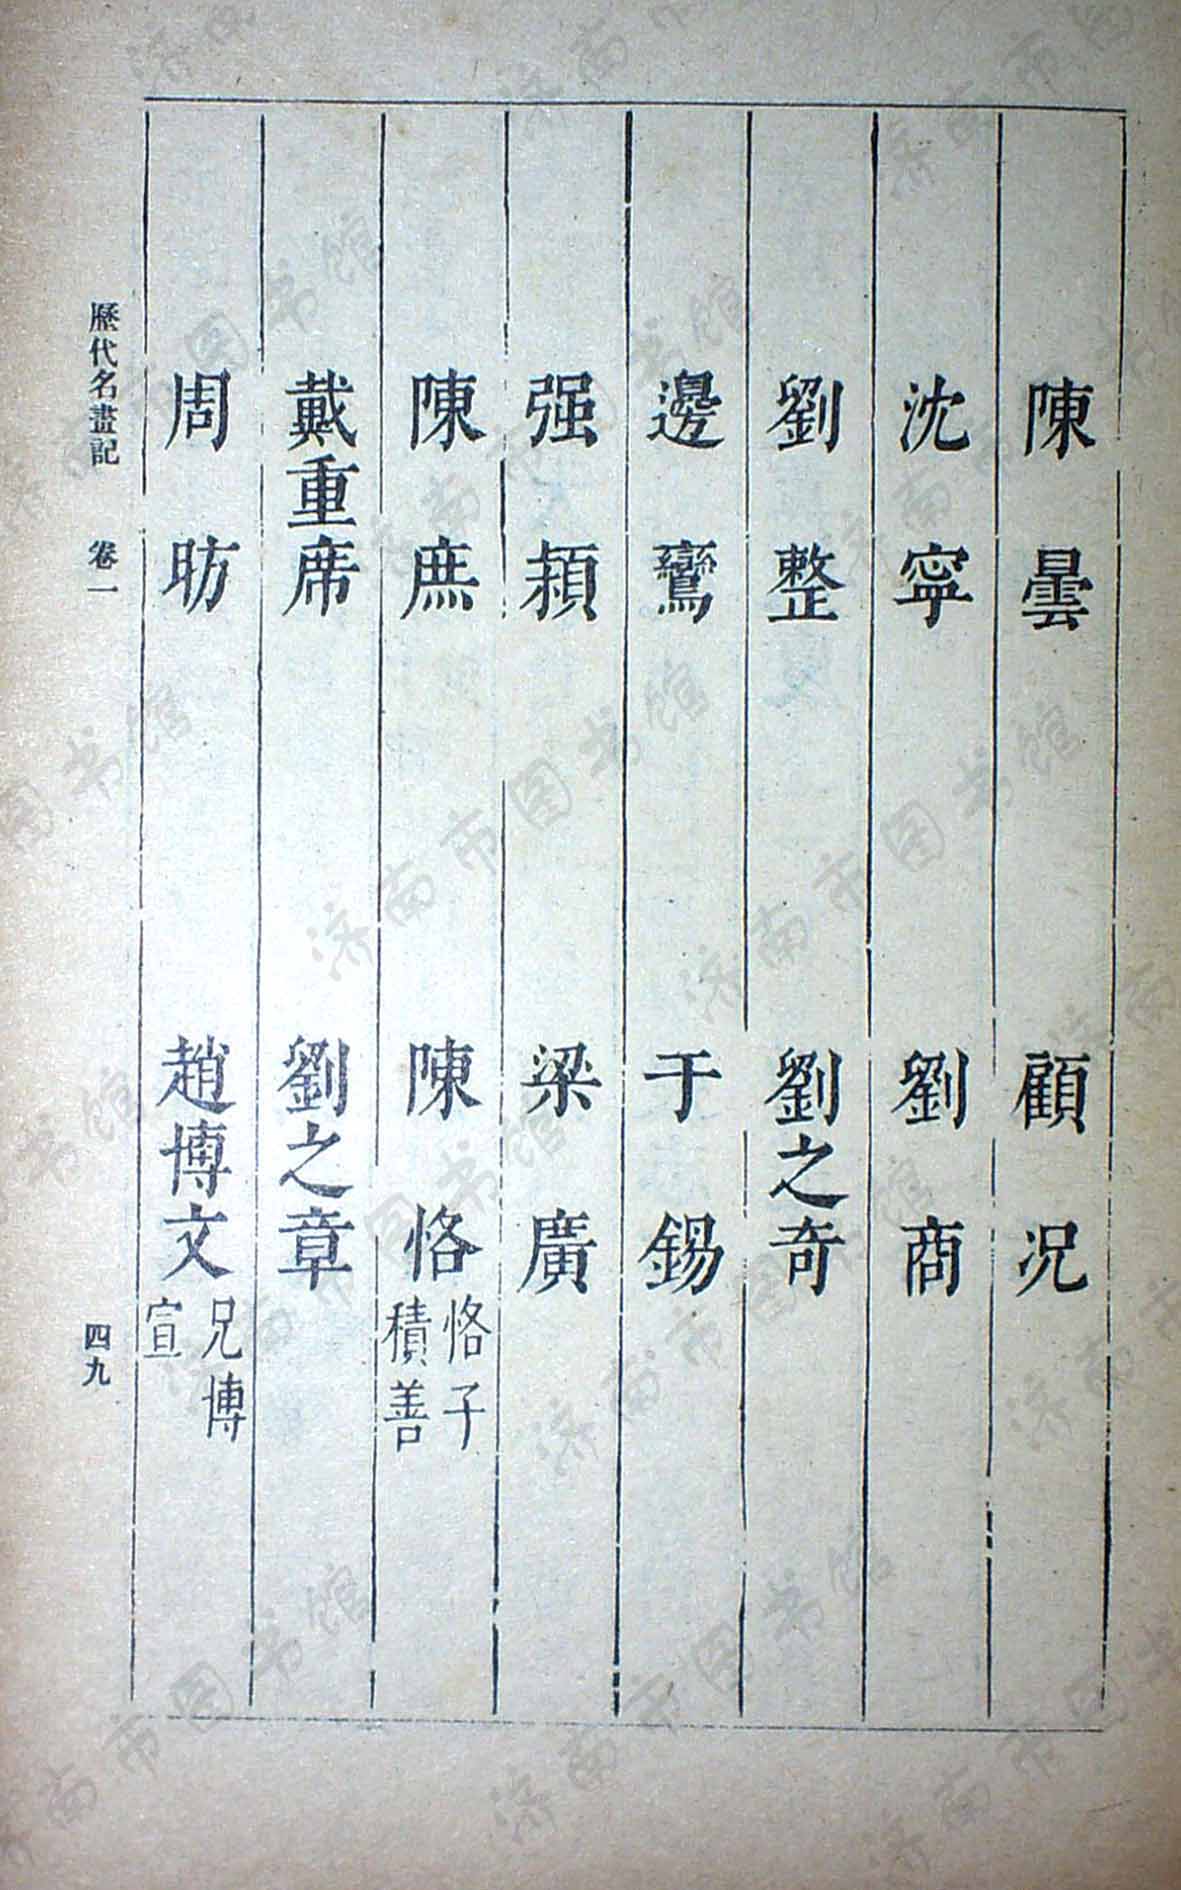 陳曇　顧况
沈寧　劉商
劉整　劉之奇
邊鸞　于錫
强頴　梁廣
陳庶　陳恪 恪子積善
戴重席　劉之章
周昉　趙博文 兄博宣
歷代名畫記　卷一　四九
济南市图书馆